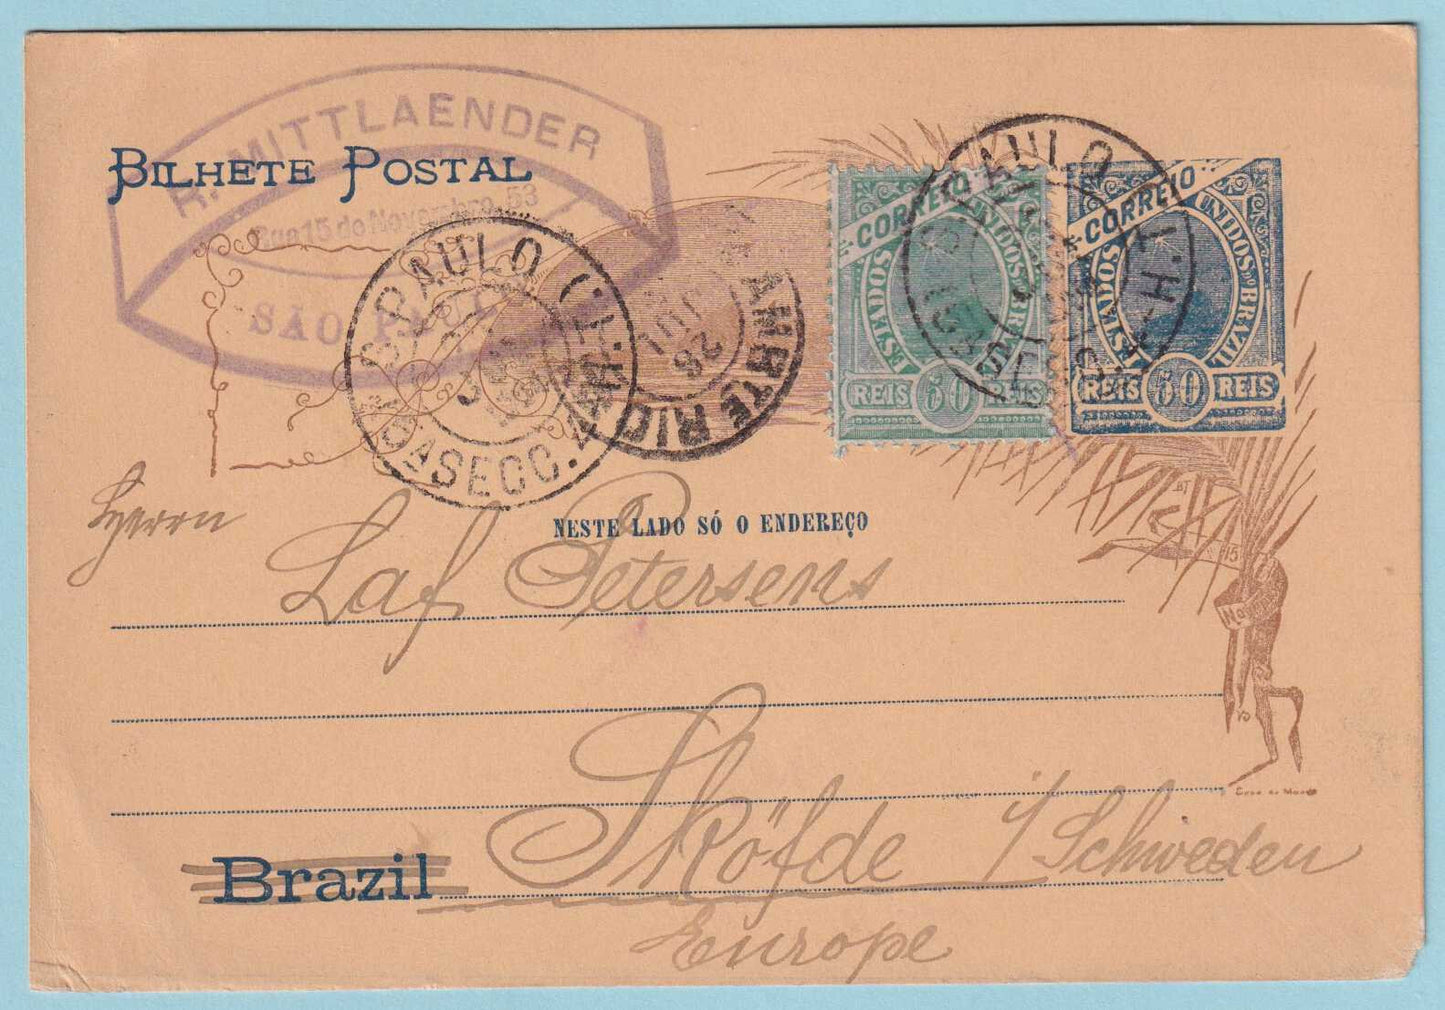 R. MITTLAENDER
Rua 15 de Novembro, 53
SÃO PAULO
BILHETE POSTAL
S. PAULO
SECC.
AMBTE RIO
JUL
26
CORREIO
ESTADOS UNIDOS BRAZIL
REIS 50 REIS
S. PAULO
CORREIO
ESTADOS UNIDOS BRAZIL
REIS 50 REIS
NESTE LADO SÓ O ENDEREÇO
Herrn
Laf Petersens
15
Nov
Casa da Moeda
Sköfde i/Schweden
Brazil
Europe